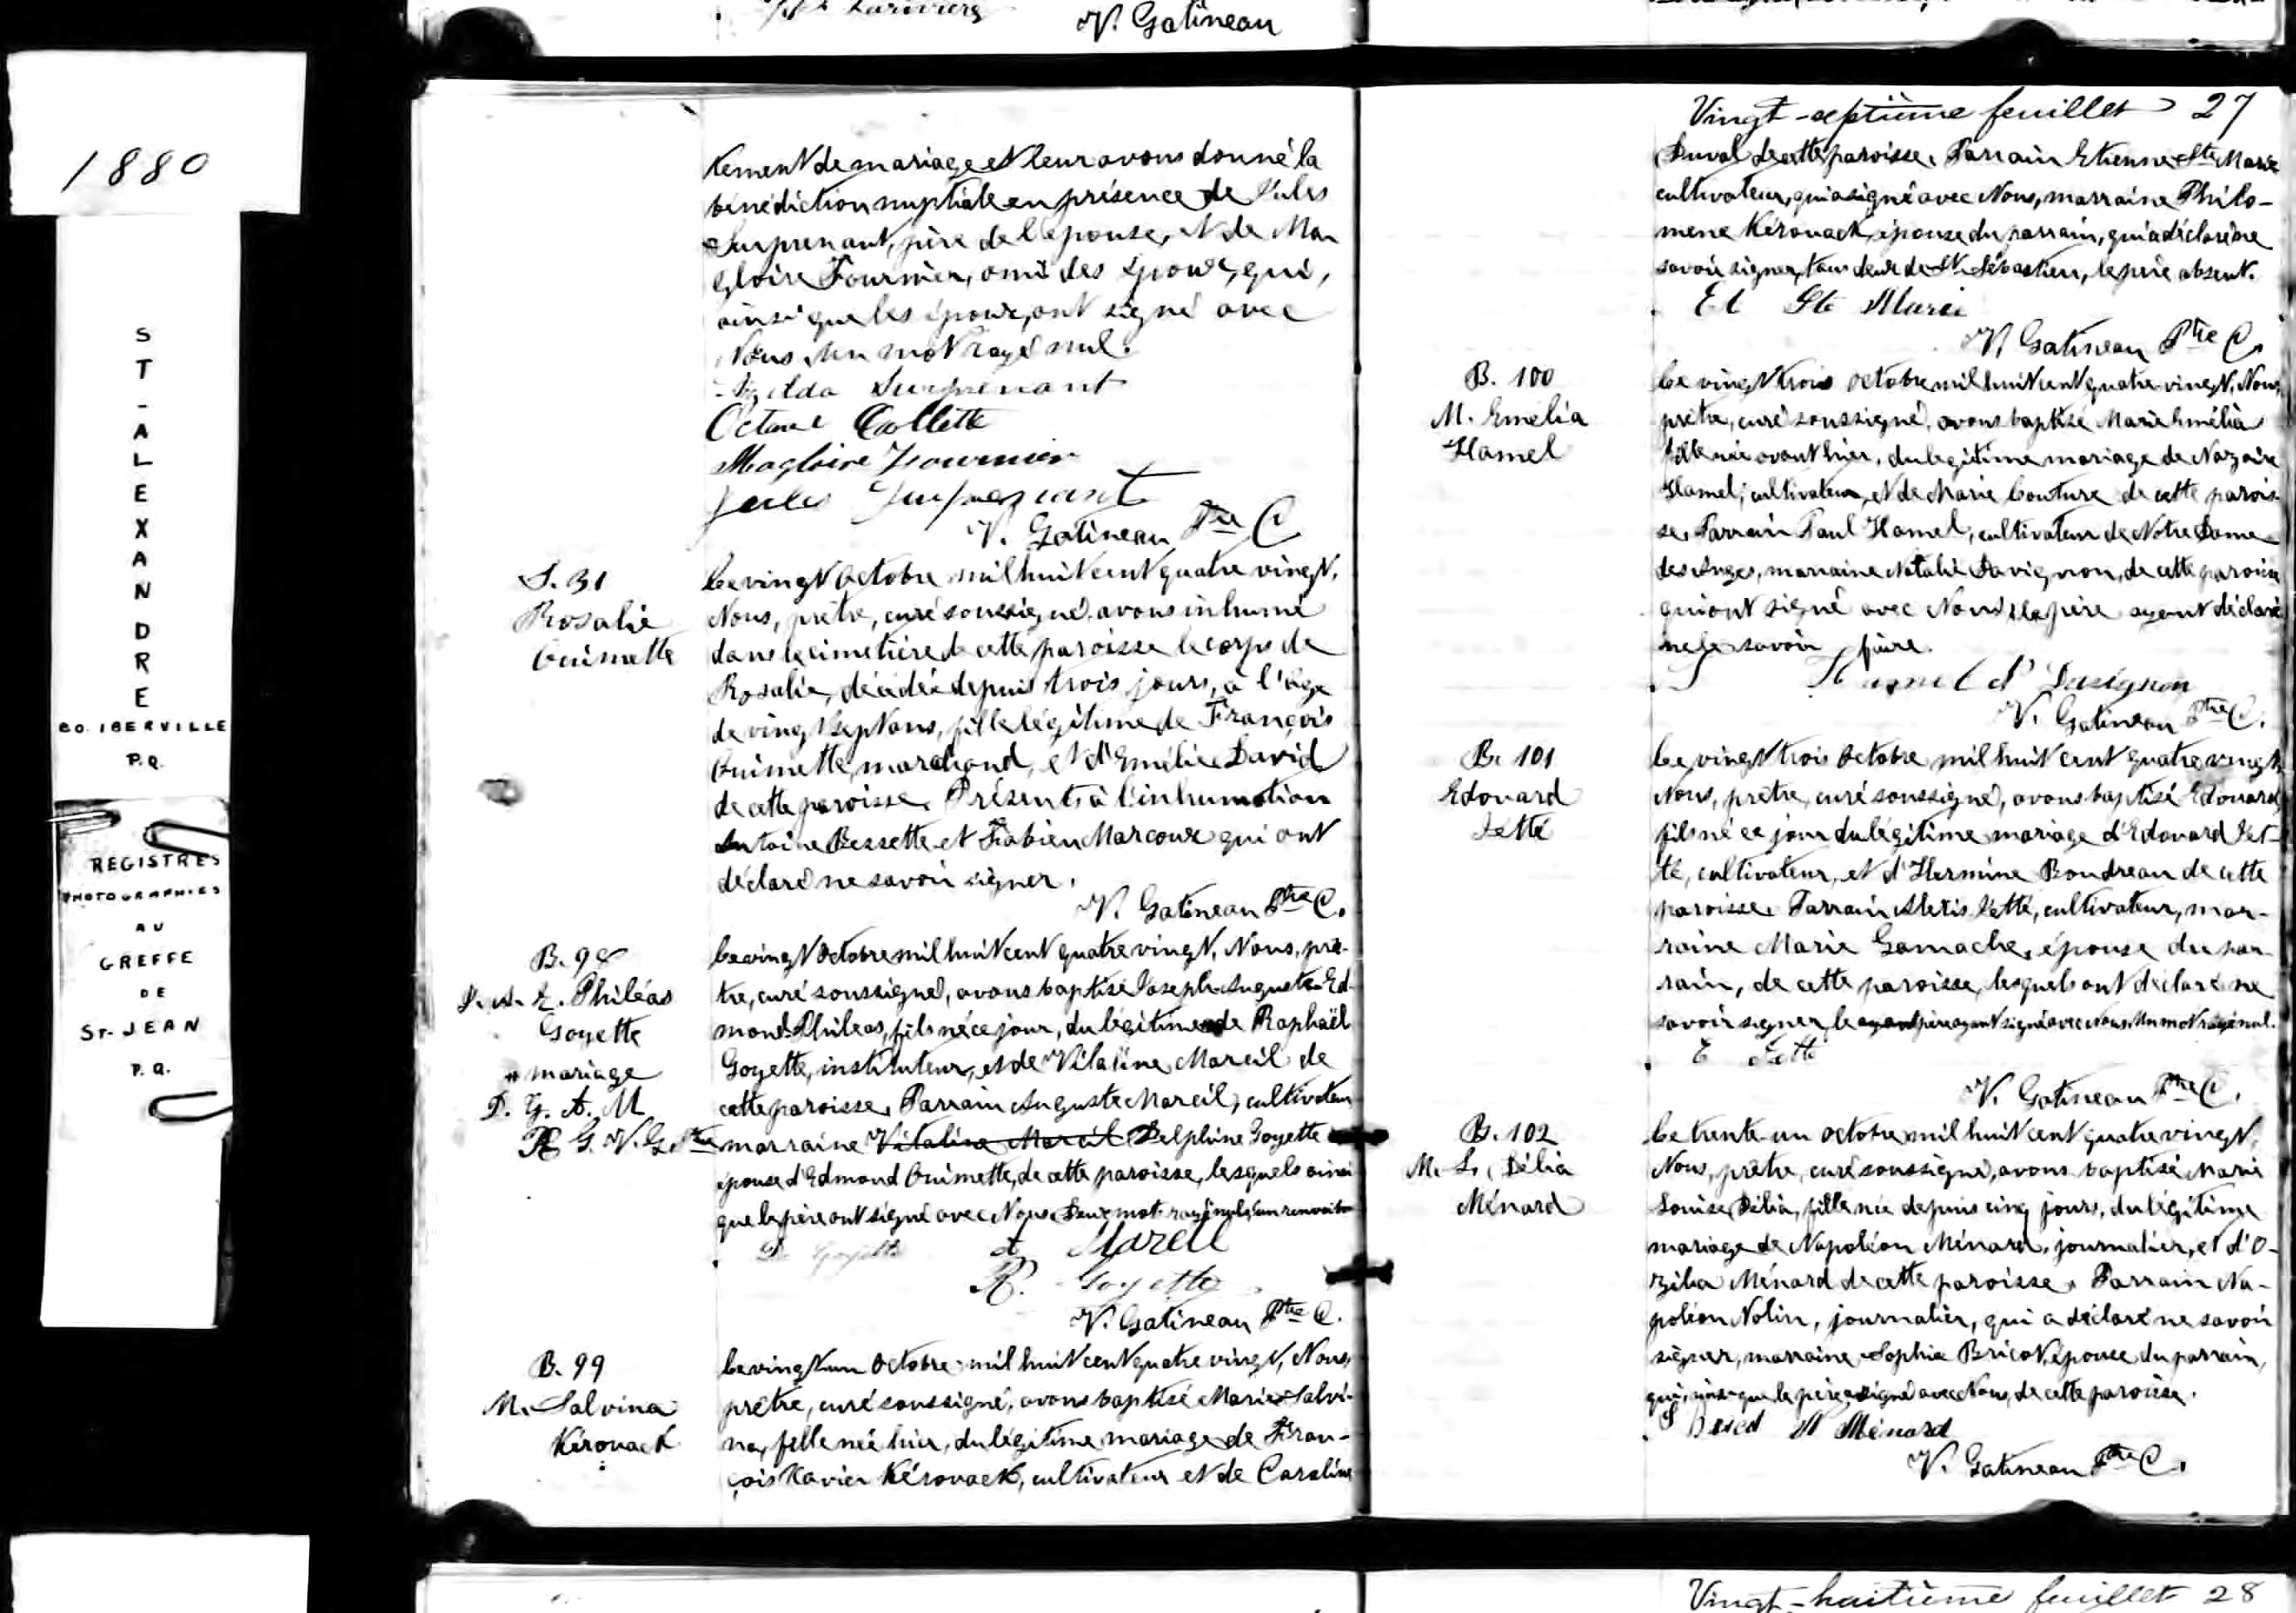 V. Gatineau
1880
S
T
-
A
L
E
X
A
N
D
R
E
CO. IBERVILLE
P.Q.
REGISTRES
PHOTOGRAPHIES
AU
GREFFE
DE
ST-JEAN
P.Q.
tement de mariage et leur avons donné la
bénédiction nuptiale en présence de Jules
Surprenant, père de l'épouse, et de Ma
gloire Fournier, ami des époux, qui,
ainsi que les époux, ont signé avec
Nous. Un mot rayé nul.
Surprenant
Octave Collette
Magloire Fournier
Jules Surprenant
V. Gatineau Ptre C
S. 31
Rosalie
Ouimette
Le vingt Octobre mil huit cent quatre vingt,
Nous, prêtre, curé soussigné, avons inhumé
dans le cimetière de cette paroisse le corps de
Rosalie, décédée depuis trois jours, à l'âge
de vingt sept ans, fille légitime de François
Ouimette, marchand, et d'Emélie David
de cette paroisse. Présents à l'inhumation
Antoine Bessette et Fabien Marcoux qui ont
déclaré ne savoir signer.
V. Gatineau Ptre C.
B. 98
J. A. E. Philéas
Goyette
# mariage
D. G. A. M
R. G. V. G. Ptre
Le vingt Octobre mil huit cent quatre vingt, Nous, prê-
tre, curé soussigné, avons baptisé Joseph Auguste Ed-
mond Philéas, fils né ce jour, du légitime # de Raphaël
Goyette, instituteur, et de Vitaline Mareil de
cette paroisse. Parrain Auguste Mareil, cultivateur
marraine Vitaline Mareil Delphine Goyette
épouse d'Edmond Ouimette, de cette paroisse, lesquels ainsi
que le père ont signé avec Nous. Deux mots rayés nuls, un renvoi bon
D. Goyette A. Mareil
R. Goyette
V. Gatineau Ptre C.
B. 99
M. Salvina
Kérouack
Le vingt un Octobre mil huit cent quatre vingt, Nous,
prêtre, curé soussigné, avons baptisé Marie Salvi-
na, fille née hier, du légitime mariage de Fran-
çois Xavier Kérouack, cultivateur et de Caroline
Vingt-septième feuillet 27
Duval de cette paroisse. Parrain Etienne Ste Marie
cultivateur, qui a signé avec Nous, marraine Philo-
mène Kérouack, épouse du parrain, qui a déclaré ne
savoir signer, tous deux de St. Sébastien, le père absent.
Et Ste Marie
V. Gatineau Ptre C.
B. 100
M. Emélia
Hamel
Le vingt trois Octobre mil huit cent quatre-vingt, Nous,
prêtre, curé soussigné, avons baptisé Marie Emélia
fille née avant hier, du légitime mariage de Nazaire
Hamel, cultivateur, et de Marie Couture de cette parois-
se. Parrain Paul Hamel, cultivateur de Notre Dame
des Anges, marraine Natalie Davignon, de cette paroisse
qui ont signé avec Nous, le père ayant déclaré
ne le savoir faire.
Hamel Davignon
V. Gatineau Ptre C.
B. 101
Edouard
Jetté
Le vingt trois Octobre mil huit cent quatre vingt,
Nous, prêtre, curé soussigné, avons baptisé Edouard,
fils né ce jour du légitime mariage d'Edouard Jet-
té, cultivateur, et d'Hermine Boudreau de cette
paroisse. Parrain Alexis Jetté, cultivateur, mar-
raine Marie Gamache, épouse du par-
rain, de cette paroisse, lesquels ont déclaré ne
savoir signer, le père ayant signé avec Nous. Un mot rayé nul.
E Jetté
V. Gatineau Ptre C.
B. 102
M. L. Délia
Ménard
Le trente-un octobre mil huit cent quatre vingt,
Nous, prêtre, curé soussigné, avons baptisé Marie
Louise Délia, fille née depuis cinq jours, du légitime
mariage de Napoléon Ménard, journalier, et d'O-
zilia Ménard de cette paroisse. Parrain Na-
poléon Nolin, journalier, qui a déclaré ne savoir
signer, marraine Sophie Bricot, épouse du parrain,
qui, ainsi que le père, a signé avec Nous, de cette paroisse.
S Bricot N Ménard
V. Gatineau Ptre C.
Vingt-huitième feuillet 28